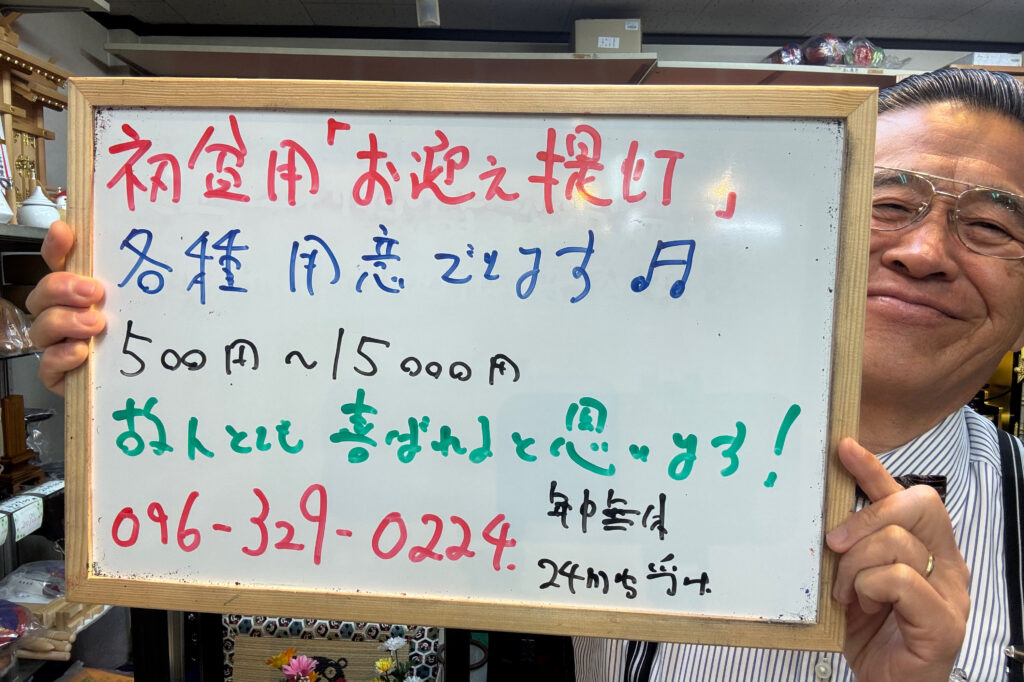 初盆用「お迎え提灯」
各種用意でとます♬
500円～15000円
故人とても喜ばれると思います!
096-329-0224.
年中無休
24時間受付